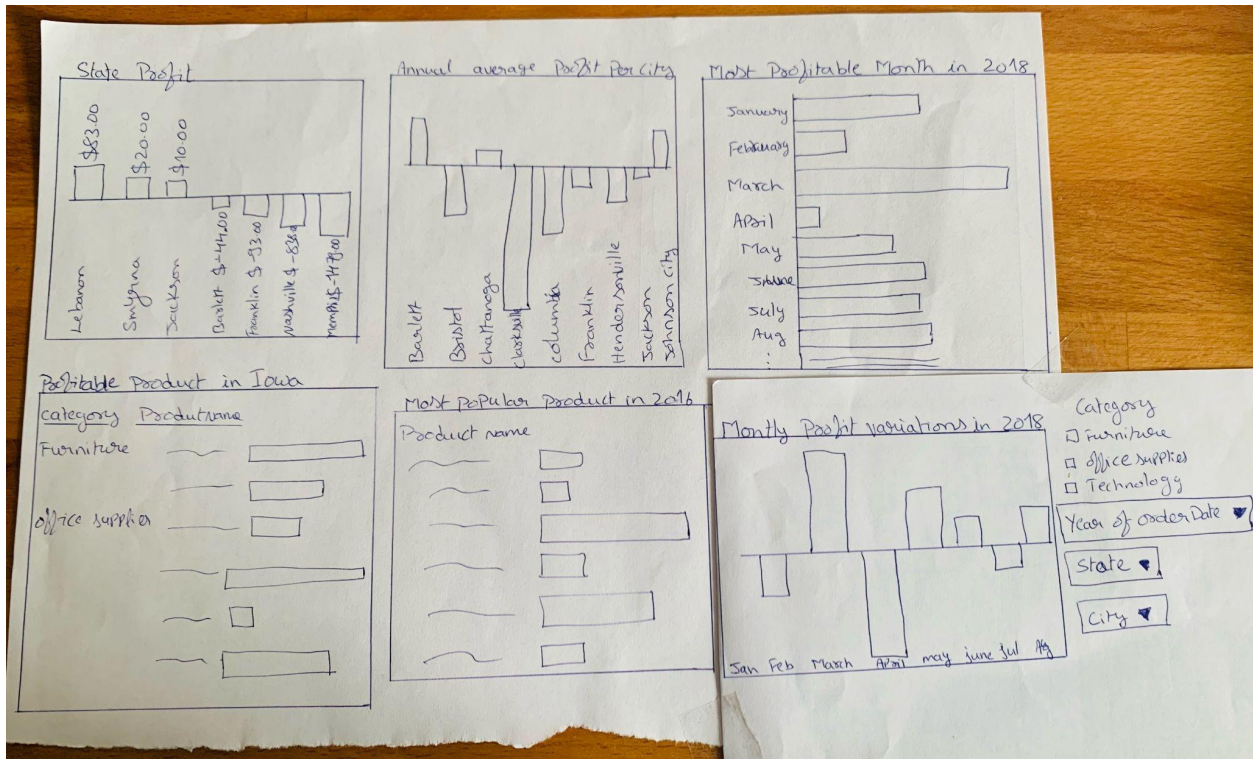 State Profit
$83.00
$20.00
$10.00
Lebanon
Smyrna
Jackson
Barlett $-44.00
Franklin $-93.00
Nashville
Memphis
Annual average Profit Per City
Barlett
Bristol
Chattanoga
Clarksville
Columbia
Franklin
Hendersonville
Jackson
Johnson city
Most Profitable Month in 2018
January
February
March
April
May
June
July
Aug
Profitable product in Iowa
Category Produtname
Furniture
office supplies
Most popular product in 2016
Product name
Montly Profit variations in 2018
Jan Feb March April may june jul Ag
Category
Furniture
office supplies
Technology
Year of order Date
State
City